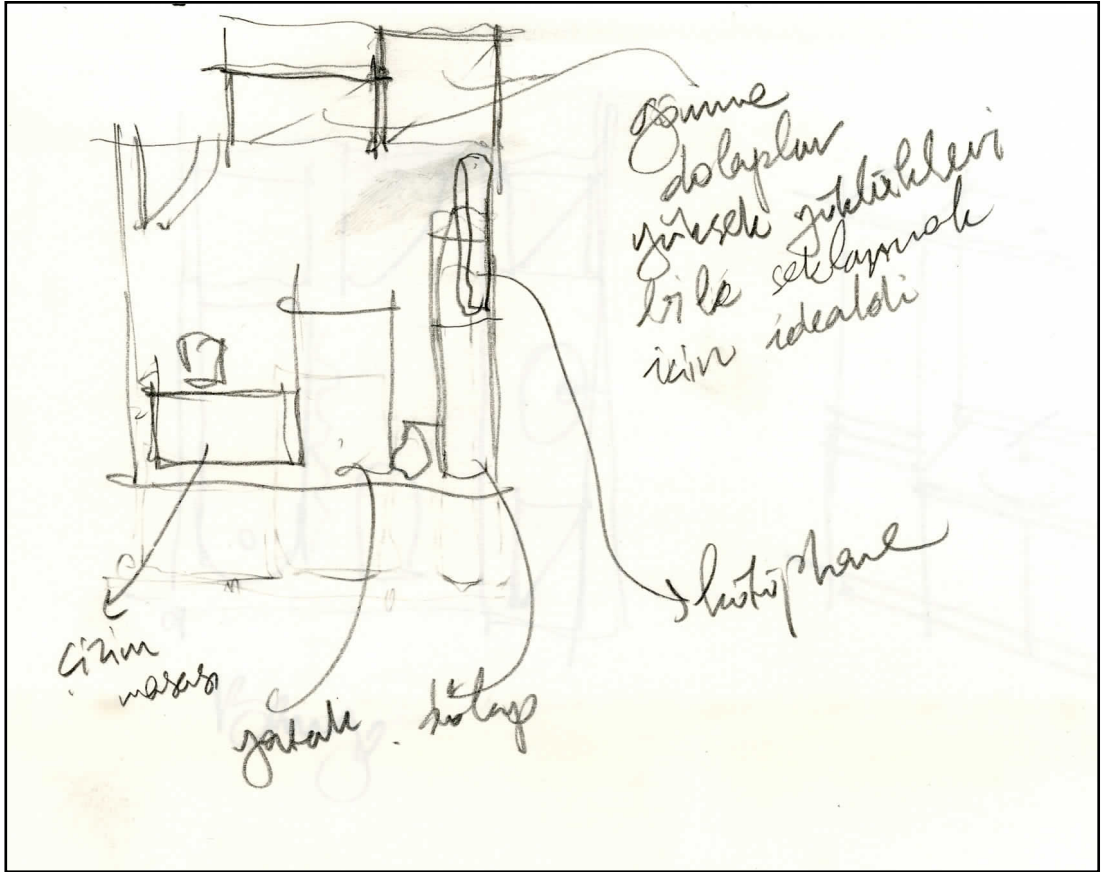 gömme
dolaplar
yüksek yüklükleri
bile saklamak
için idealdi
kütüphane
çizim
masası
yatak